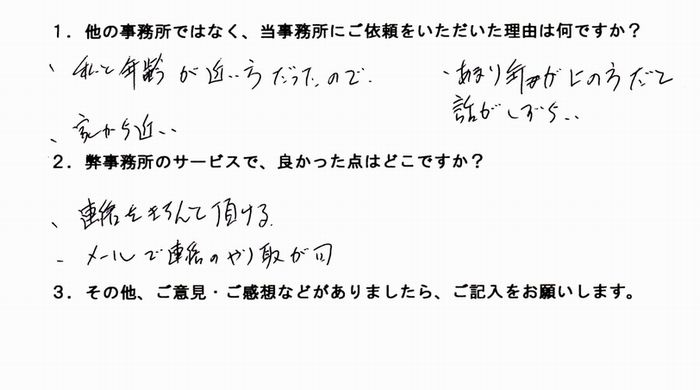 １．他の事務所ではなく、当事務所にご依頼をいただいた理由は何ですか？
、私と年齢が近い方だったので.
・あまり年が上の方だと
話がしずらい
、家から近い
２．弊事務所のサービスで、良かった点はどこですか？
、連絡をきちんと頂ける.
- メールで連絡のやり取が可
３．その他、ご意見・ご感想などがありましたら、ご記入をお願いします。